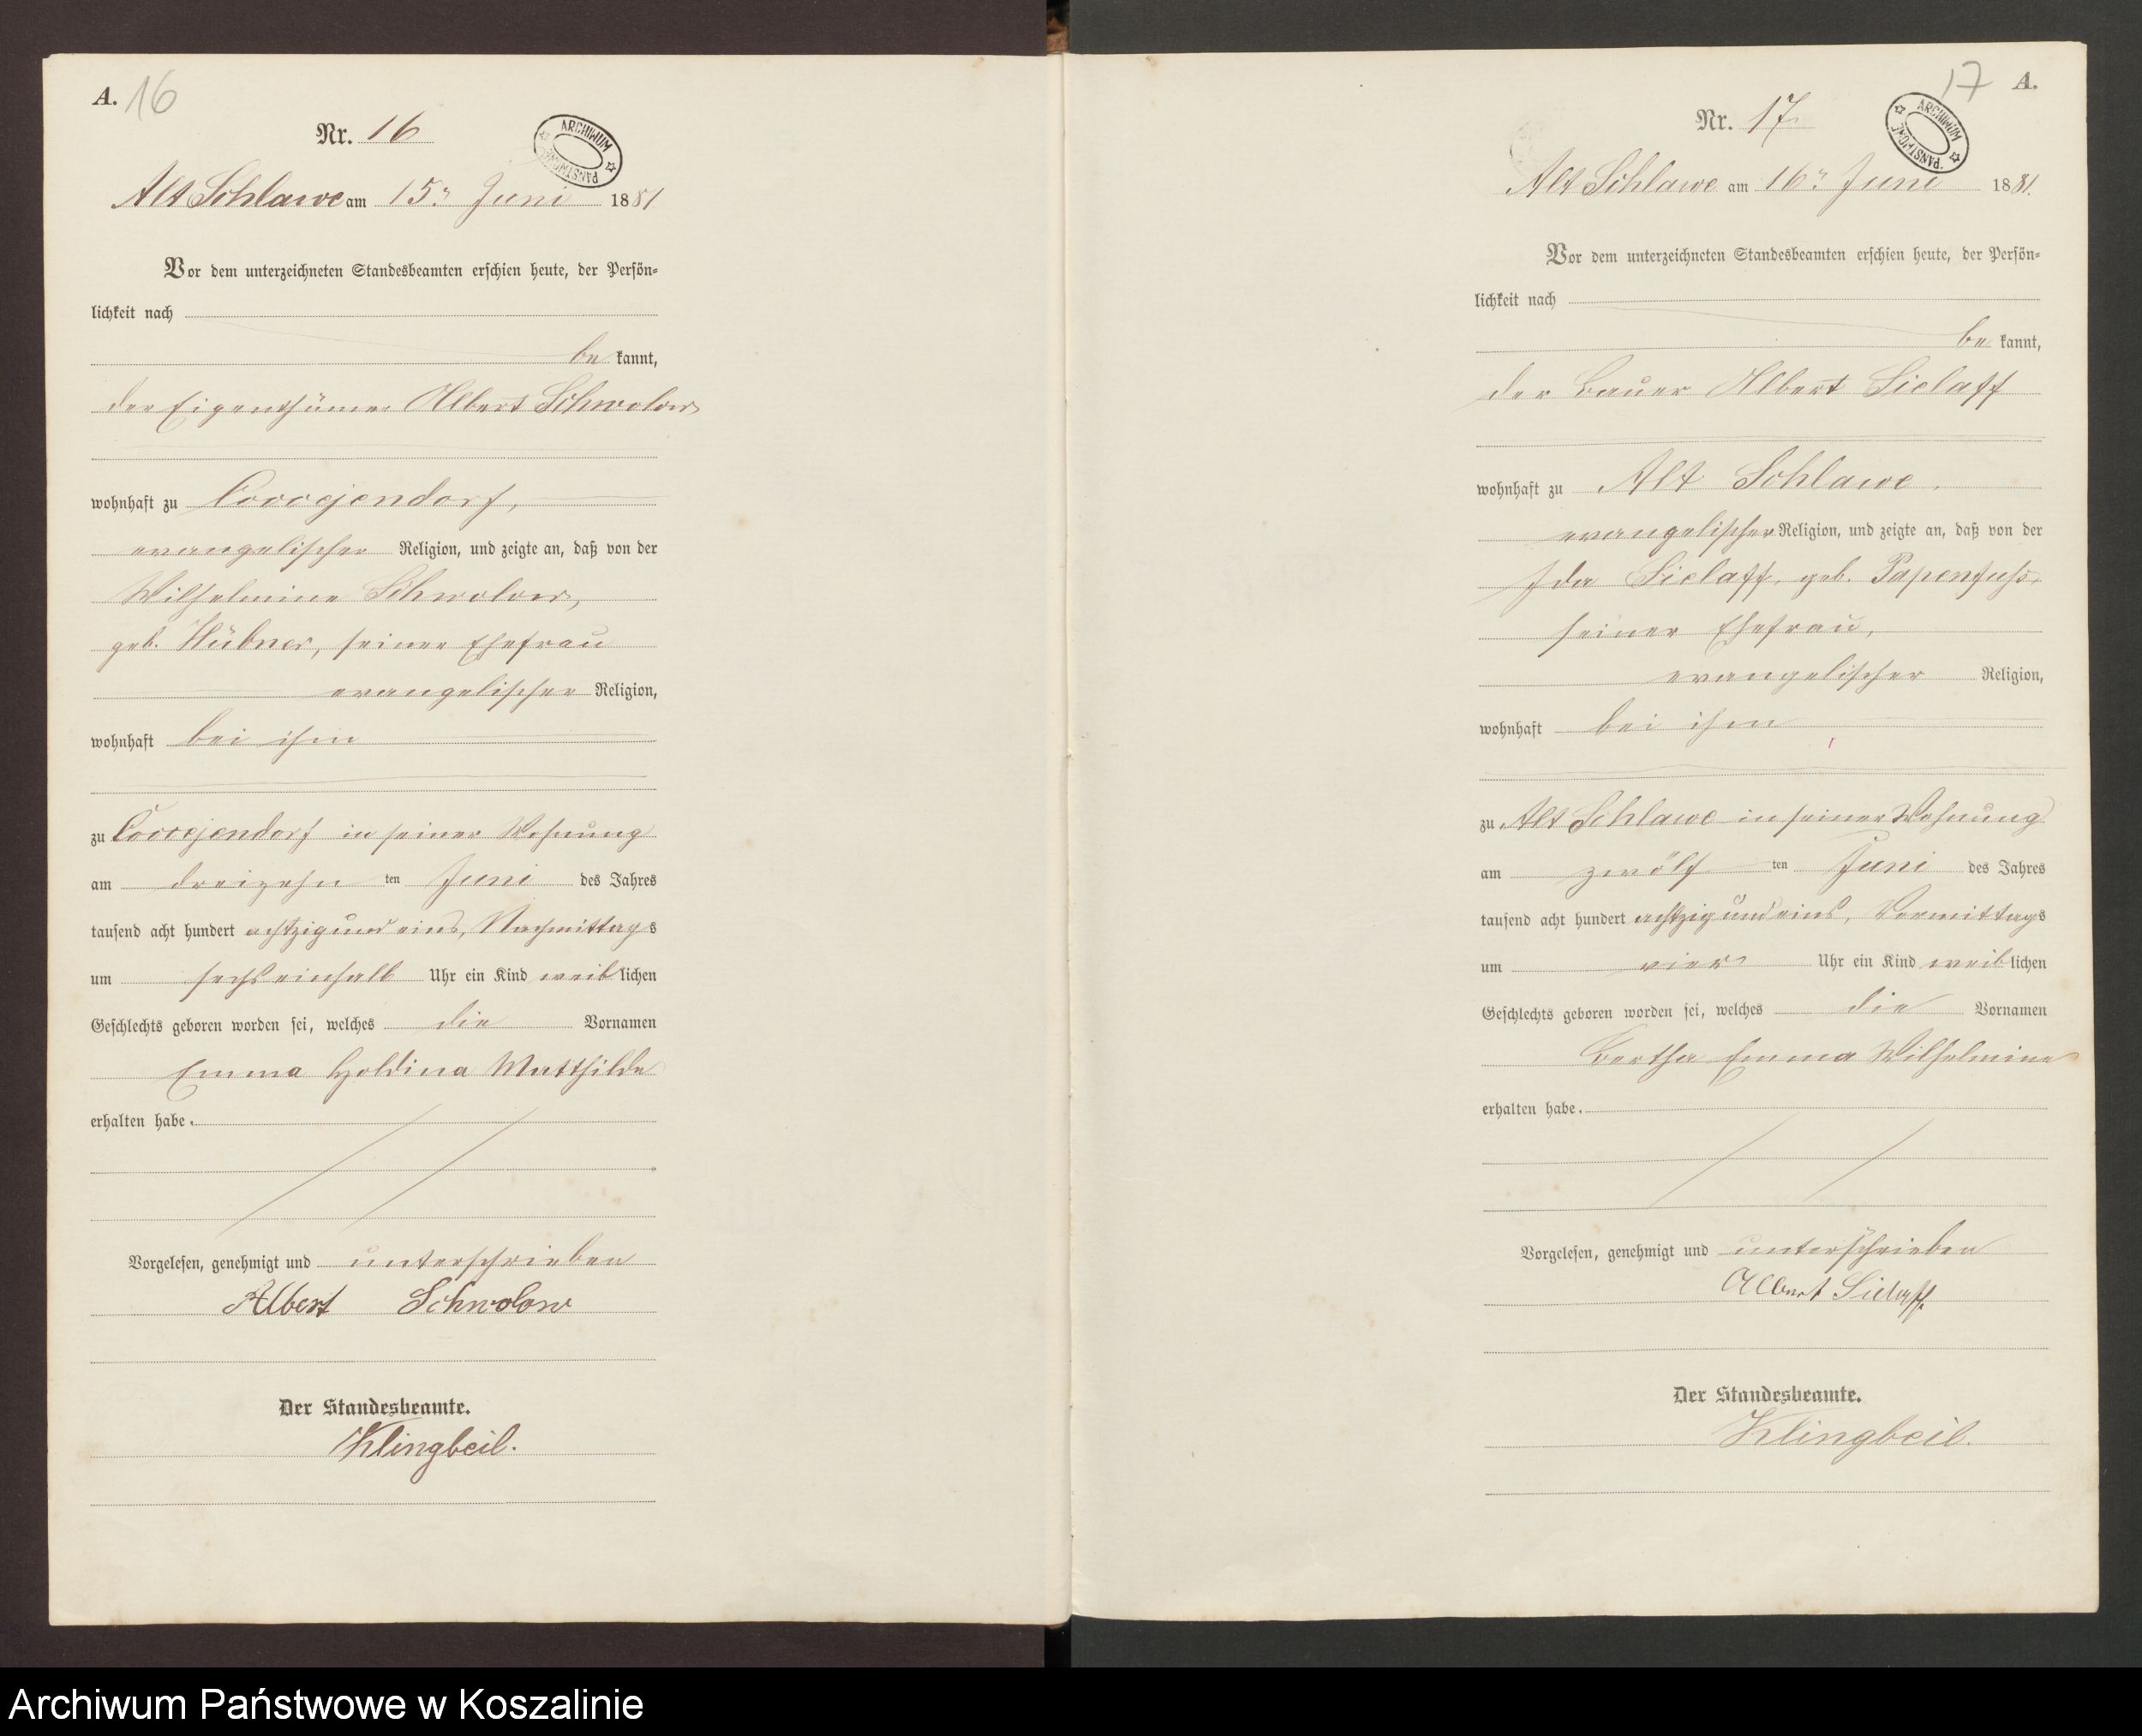 A. 16
Nr. 16
ARCHIWUM PAŃSTWOWE
Alt Schlawe am 15ⁿ Juni 1881
Vor dem unterzeichneten Standesbeamten erschien heute, der Persön-
lichkeit nach
be kannt,
der Eigenthümer Albert Schwolow
wohnhaft zu Coccejendorf,
evangelischer Religion, und zeigte an, daß von der
Wilhelmine Schwolow,
geb. Hübner, seiner Ehefrau
evangelischer Religion,
wohnhaft bei ihm
zu Coccejendorf in seiner Wohnung
am dreizehn ten Juni des Jahres
tausend acht hundert achtzig und eins, Nachmittags
um sechs einhalb Uhr ein Kind weiblichen
Geschlechts geboren worden sei, welches die Vornamen
Emma Holdina Matthilde
erhalten habe.
Vorgelesen, genehmigt und unterschrieben
Albert Schwolow
Der Standesbeamte.
Klingbeil.
17 A.
Nr. 17
ARCHIWUM PAŃSTWOWE
Alt Schlawe am 16ⁿ Juni 1881.
Vor dem unterzeichneten Standesbeamten erschien heute, der Persön-
lichkeit nach
be kannt,
der Bauer Albert Sielaff
wohnhaft zu Alt Schlawe.
evangelischer Religion, und zeigte an, daß von der
Ida Sielaff, geb. Papenfuss,
seiner Ehefrau,
evangelischer Religion,
wohnhaft bei ihm
zu Alt Schlawe in seiner Wohnung
am zwölf ten Juni des Jahres
tausend acht hundert achtzig und eins, Vormittags
um vier Uhr ein Kind weiblichen
Geschlechts geboren worden sei, welches die Vornamen
Bertha Emma Wilhelmine
erhalten habe.
Vorgelesen, genehmigt und unterschrieben
Albert Sielaff.
Der Standesbeamte.
Klingbeil.
Archiwum Państwowe w Koszalinie